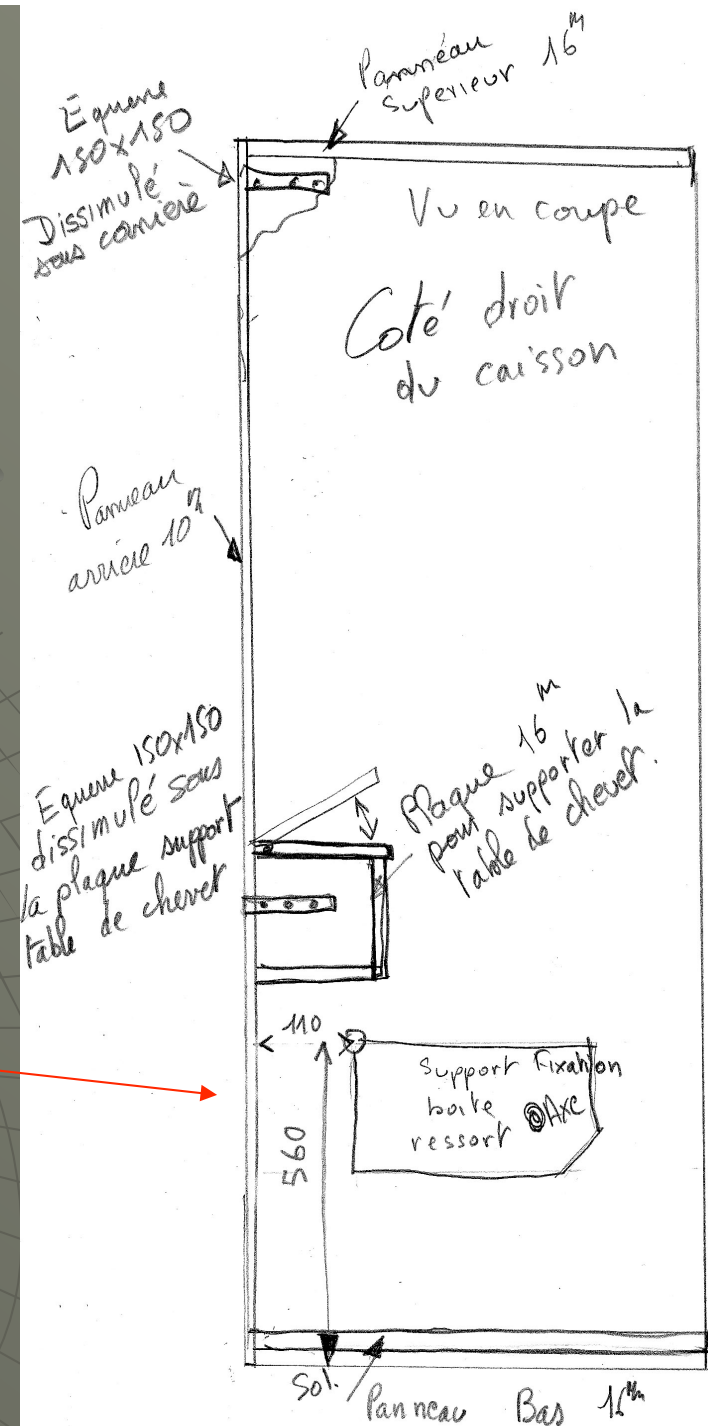 Panneau
Superieur 16 m
Equerre
150x150
Dissimulé
sous corniere
Vu en coupe
Coté droit
du caisson
Panneau
arriere 10 m
Equerre 150x150
dissimulé sous
la plaque support
table de chevet
Plaque 16 m
pour supporter la
table de chevet.
110
560
Support Fixation
boite
ressort Axe
Sol.
Panneau Bas 16 mm